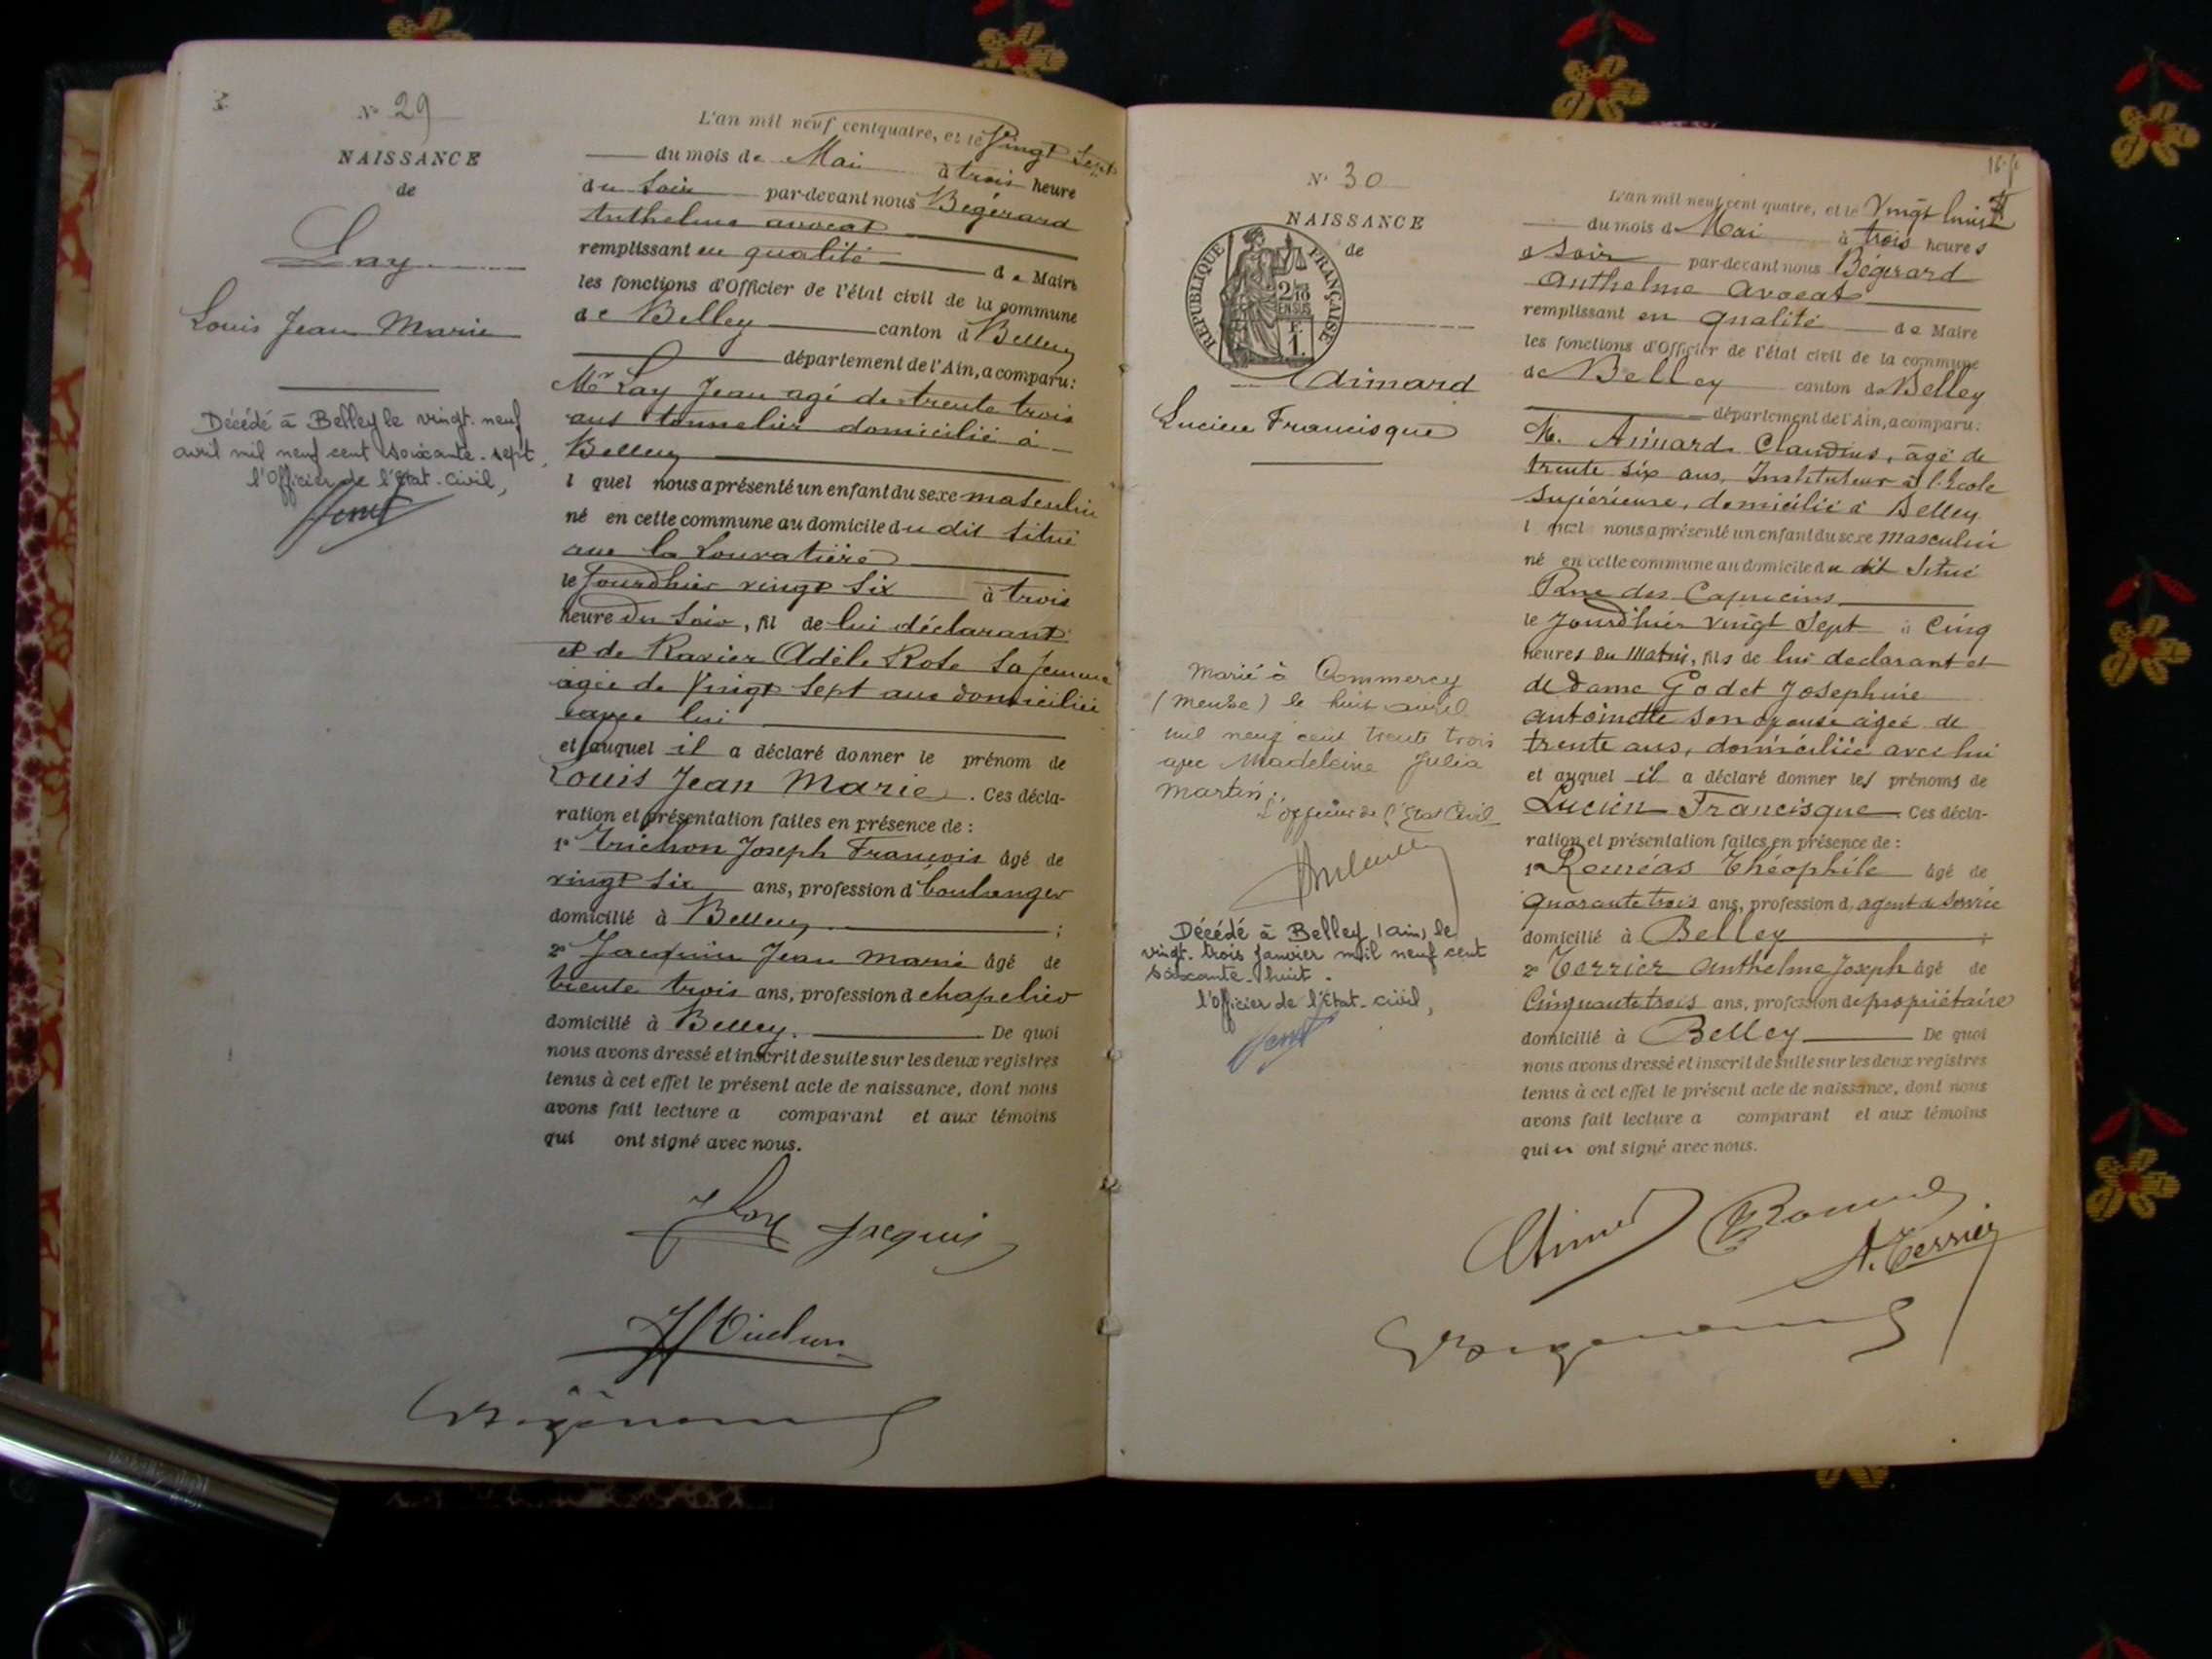 Nº 29
NAISSANCE
de
Lay
Louis Jean Marie
Décédé à Belley le vingt-neuf
avril mil neuf cent soixante-sept,
l'Officier de l'Etat-Civil,
L'an mil neuf cent quatre, et le Vingt Sept
du mois de Mai à trois heure
du Soir par-devant nous Bégérard
Anthelme avocat
remplissant en qualité de Maire
les fonctions d'Officier de l'état civil de la commune
de Belley canton d Belley
département de l'Ain, a comparu:
Mr Lay Jean agé de trente trois
ans tonnelier domicilié à
Belley
l quel nous a présenté un enfant du sexe masculin
né en cette commune au domicile du dit situé
rue la Louvatière
le jourdhier vingt six à trois
heure du Soir, fil de lui déclarant
et de Ravier Adèle Rose sa femme
agée de Vingt Sept ans domiciliée
avec lui
et auquel il a déclaré donner le prénom de
Louis Jean Marie. Ces décla-
ration et présentation faites en présence de :
1º Trichon Joseph François âgé de
vingt six ans, profession d boulanger
domicilié à Belley ;
2º Jacquin Jean Marie âgé de
trente trois ans, profession d chapelier
domicilié à Belley. De quoi
nous avons dressé et inscrit de suite sur les deux registres
tenus à cet effet le présent acte de naissance, dont nous
avons fait lecture a comparant et aux témoins
qui ont signé avec nous.
J Lay Jacquin
J Trichon
Bégérard
16
Nº 30
NAISSANCE
de
REPUBLIQUE FRANÇAISE
2/10 EN SUS
F. 1.
Aimard
Lucien Francisque
Marié à Commercy
(Meuse) le huit avril
mil neuf cent trente trois
avec Madeleine Julia
Martin.
L'officier de l'Etat Civil
Décédé à Belley (Ain) le
vingt-trois janvier mil neuf cent
soixante-huit.
l'Officier de l'Etat-civil,
L'an mil neuf cent quatre, et le Vingt huit
du mois d Mai à trois heures
d soir par-devant nous Bégérard
Anthelme Avocat
remplissant en qualité de Maire
les fonctions d'Officier de l'état civil de la commune
de Belley canton de Belley
département de l'Ain, a comparu:
M. Aimard Claudius, âgé de
trente six ans, Instituteur à l'Ecole
Supérieure, domicilié à Belley
l quel nous a présenté un enfant du sexe masculin
né en cette commune au domicile du dit Situé
Rue des Capucins
le jourdhier vingt Sept à Cinq
heures du Matin, fils de lui declarant et
de Dame Godet Josephine
antoinette son epouse âgée de
trente ans, domiciliée avec lui
et auquel il a déclaré donner les prénoms de
Lucien Francisque Ces décla-
ration et présentation faites en présence de :
1º Roméas Théophile âgé de
Quarante trois ans, profession d agent de service
domicilié à Belley ;
2º Terrier Anthelme Joseph âgé de
Cinquante trois ans, profession de propriétaire
domicilié à Belley De quoi
nous avons dressé et inscrit de suite sur les deux registres
tenus à cet effet le présent acte de naissance, dont nous
avons fait lecture a comparant et aux témoins
qui ont signé avec nous.
A. Terrier
Bégérard